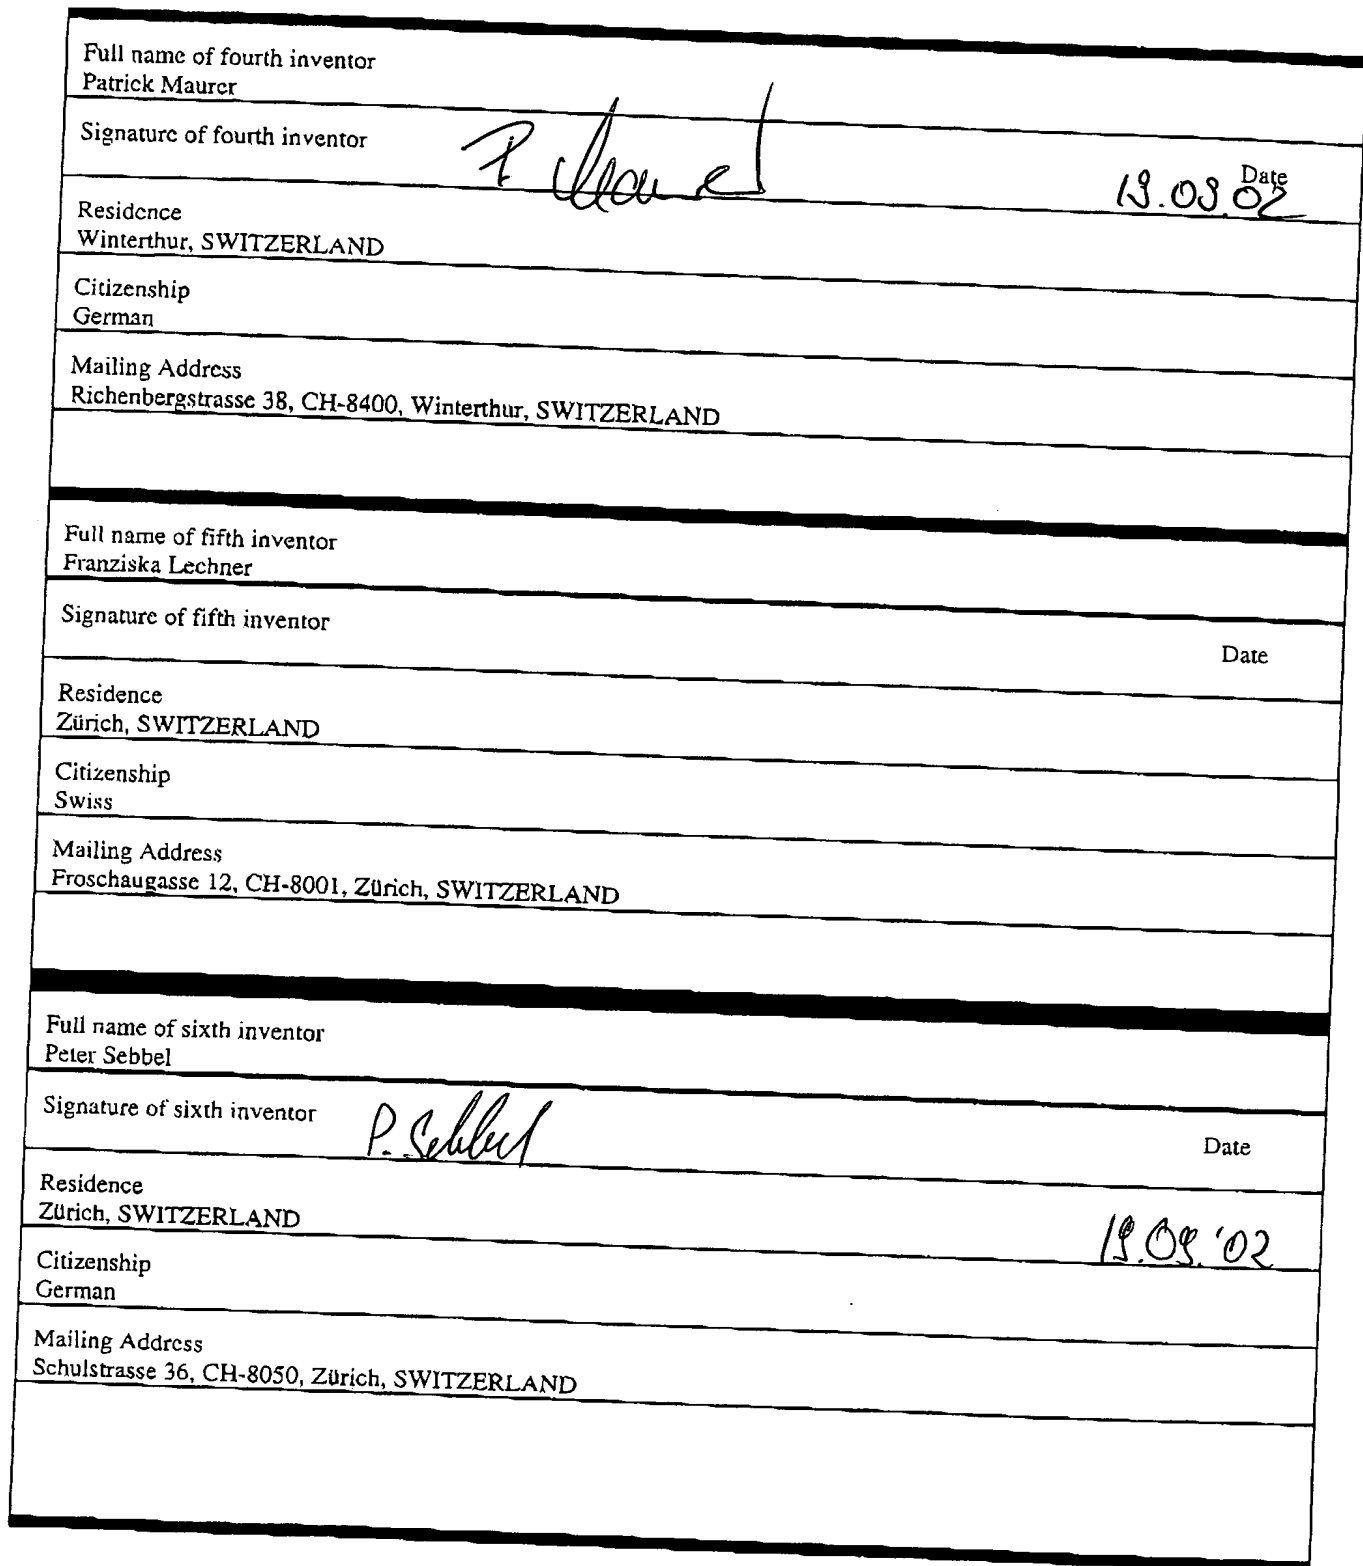 Full name of fourth inventor
Patrick Maurer
Signature of fourth inventor P Maurer Date
19.09.02
Residence
Winterthur, SWITZERLAND
Citizenship
German
Mailing Address
Richenbergstrasse 38, CH-8400, Winterthur, SWITZERLAND
Full name of fifth inventor
Franziska Lechner
Signature of fifth inventor Date
Residence
Zürich, SWITZERLAND
Citizenship
Swiss
Mailing Address
Froschaugasse 12, CH-8001, Zürich, SWITZERLAND
Full name of sixth inventor
Peter Sebbel
Signature of sixth inventor P. Sebbel Date
Residence
Zürich, SWITZERLAND 19.09.'02
Citizenship
German
Mailing Address
Schulstrasse 36, CH-8050, Zürich, SWITZERLAND